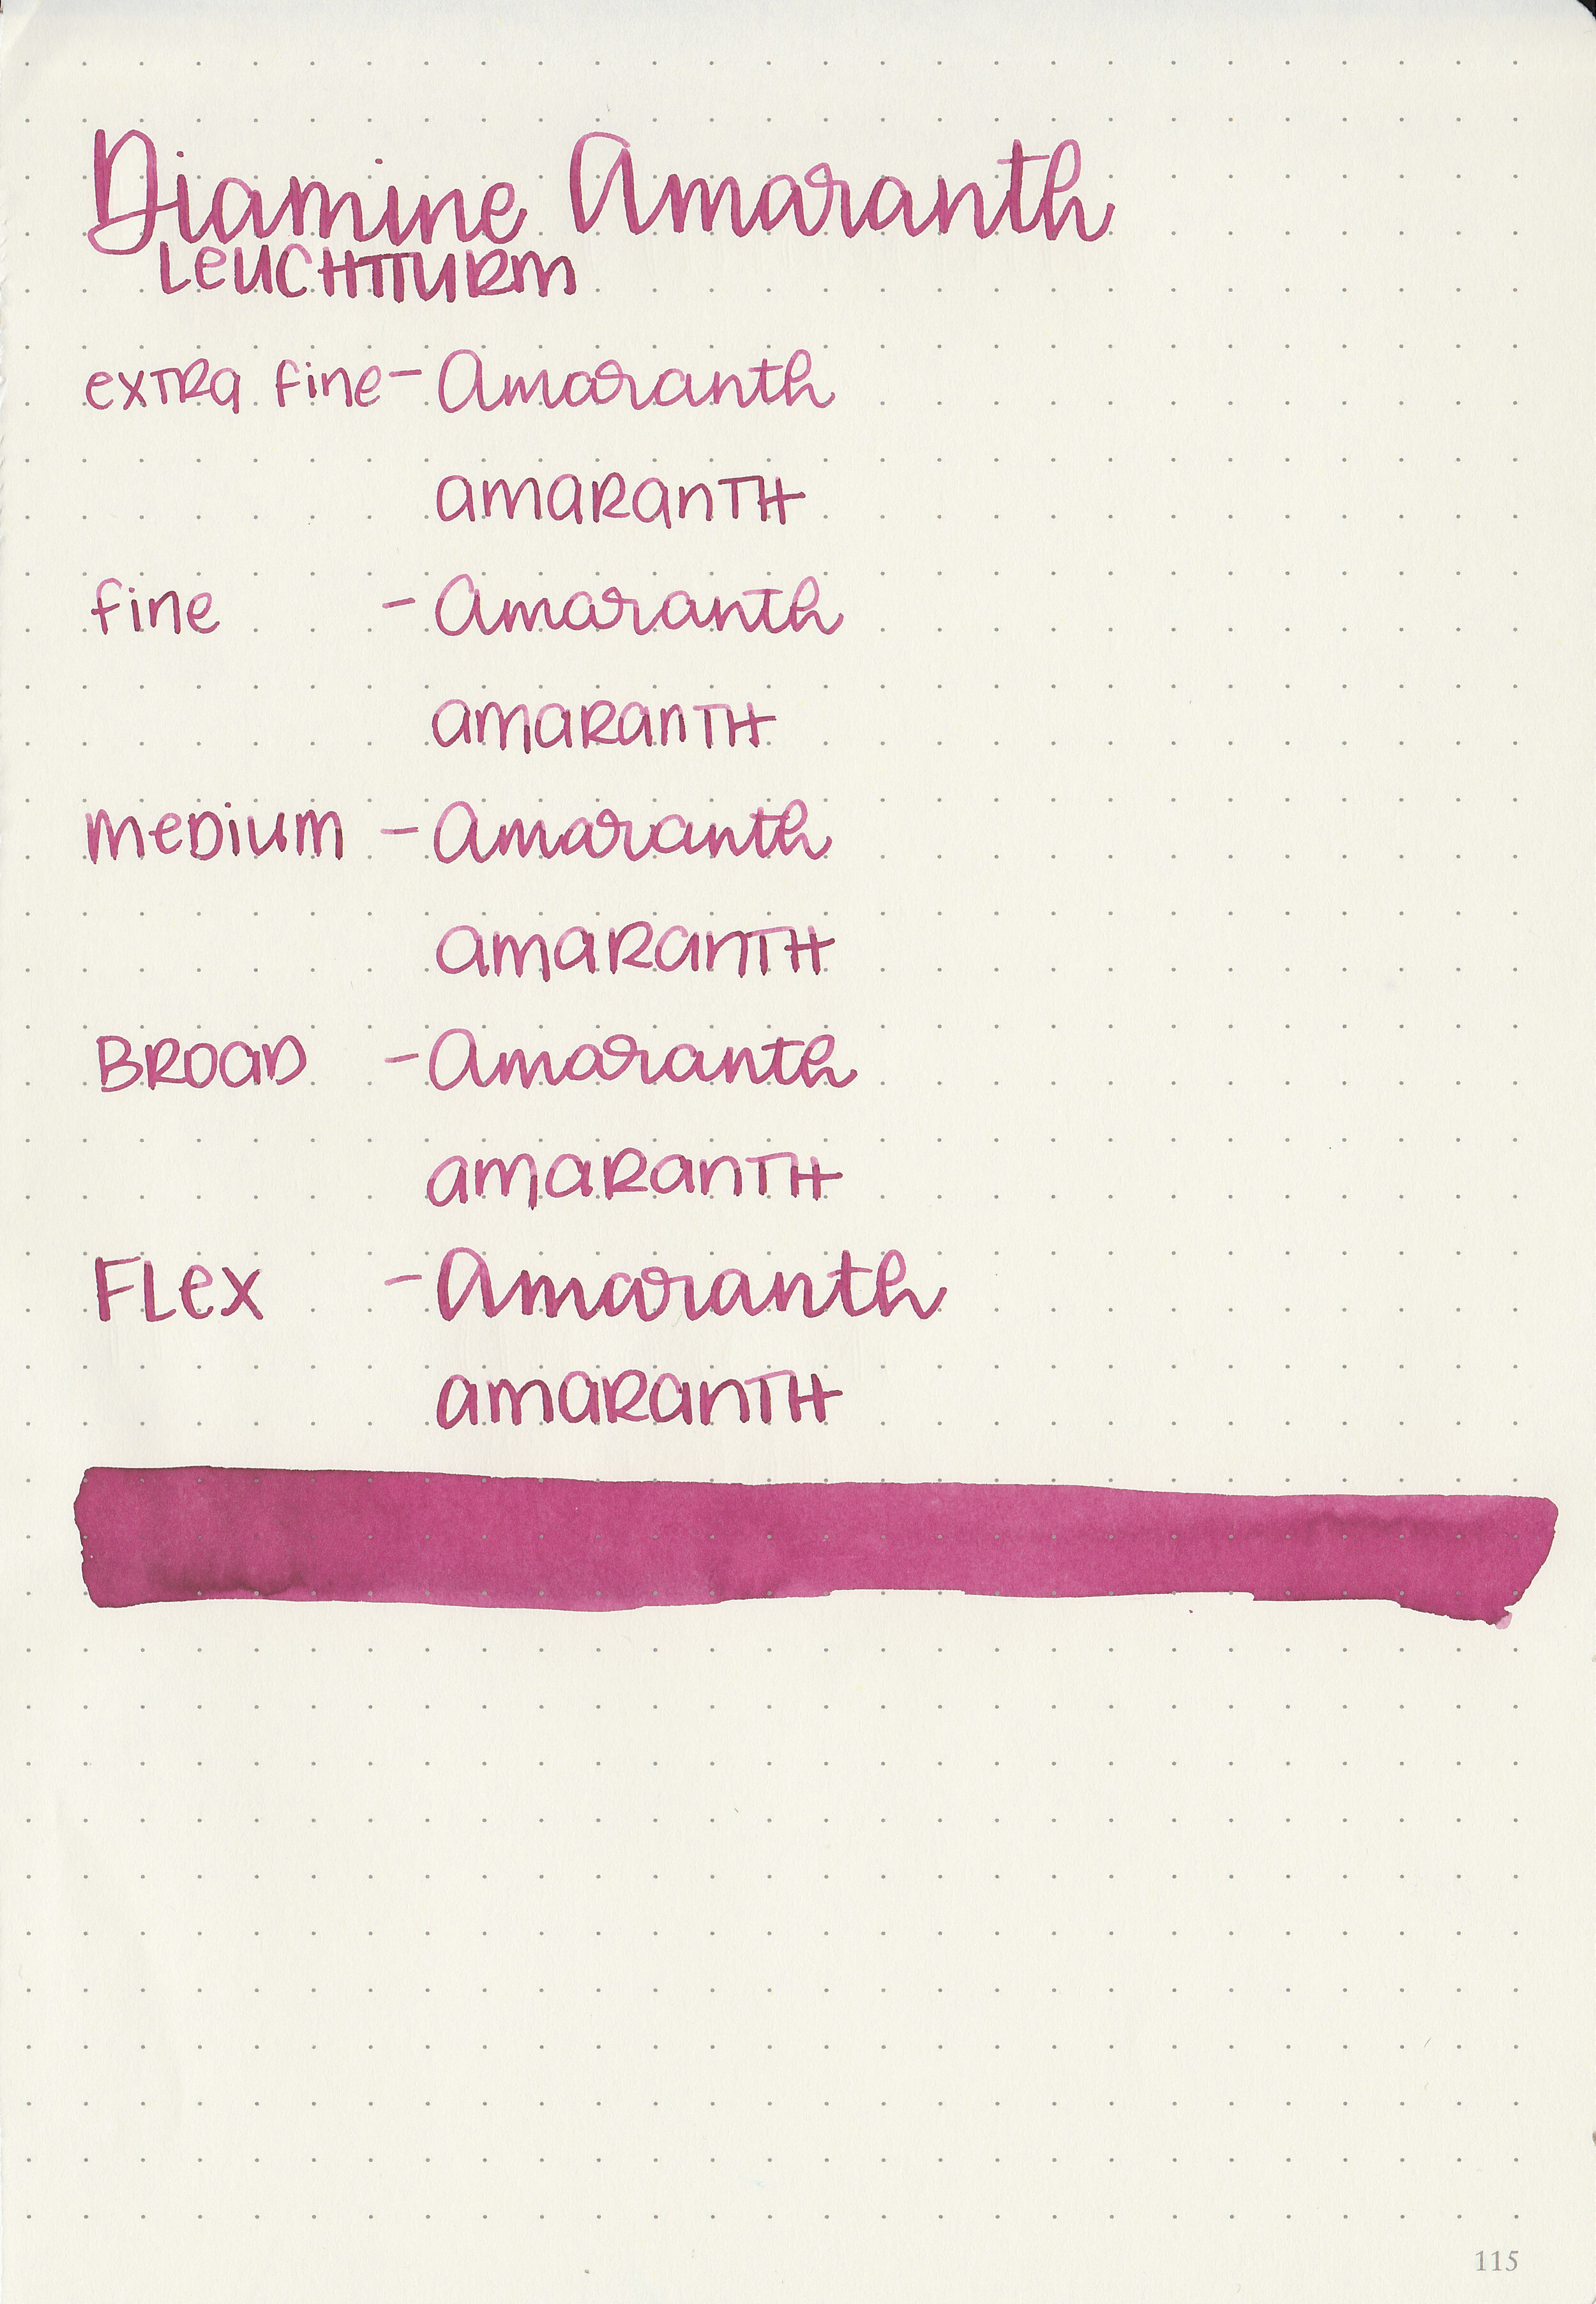 Diamine Amaranth
LEUCHTTURM
extra fine - Amaranth
amaranth
fine - Amaranth
amaranth
medium - Amaranth
amaranth
BROAD - Amaranth
amaranth
FLex - Amaranth
amaranth
115